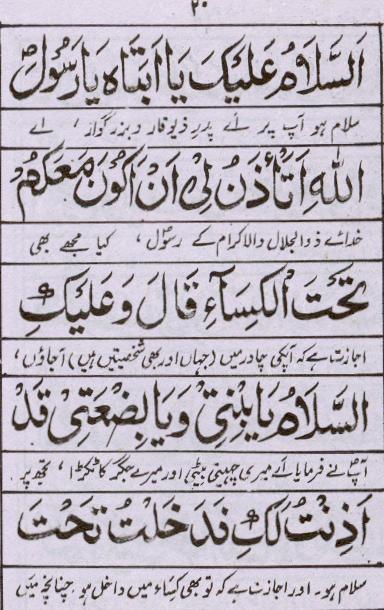 ۲۰
اَلسَّلَامُ عَلَيْكَ يَا اَبَتَاهُ يَا رَسُوْلَ
سلام ہو آپ پر اے پدرِ ذیوقار و بزرگوار، اے
اللهِ اَتَأْذَنُ لِيْ اَنْ اَكُوْنَ مَعَكُمْ
خدائے ذوالجلال والاکرام کے رسولؐ، کیا مجھے بھی
تَحْتَ الْكِسَآءِ قَالَ وَعَلَيْكِ
اجازت ہے کہ آپکی چادر میں (جہاں اور بھی شخصیتیں ہیں) آجاؤں،
السَّلَامُ يَا بِنْتِيْ وَيَا بِضْعَتِيْ قَدْ
آپؐ نے فرمایا اے میری چہیتی بیٹی اور میرے جگر کا ٹکڑا، تجھ پر
اَذِنْتُ لَكِ فَدَخَلْتُ تَحْتَ
سلام ہو۔ اور اجازت ہے کہ تو بھی کساء میں داخل ہو چنانچہ میں